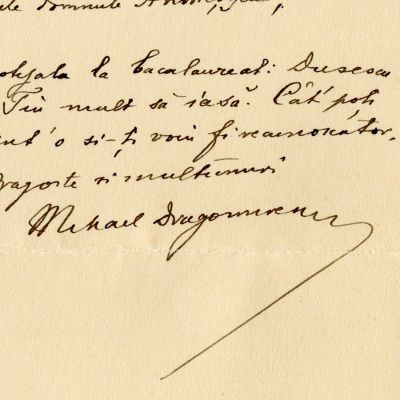 domnule
la bacalaureat: Dusescu
Țin mult să iasă. Cât poți
o si-ți voiu fi recunoscător.
dragoste si multumiri
Mihael Dragomirescu